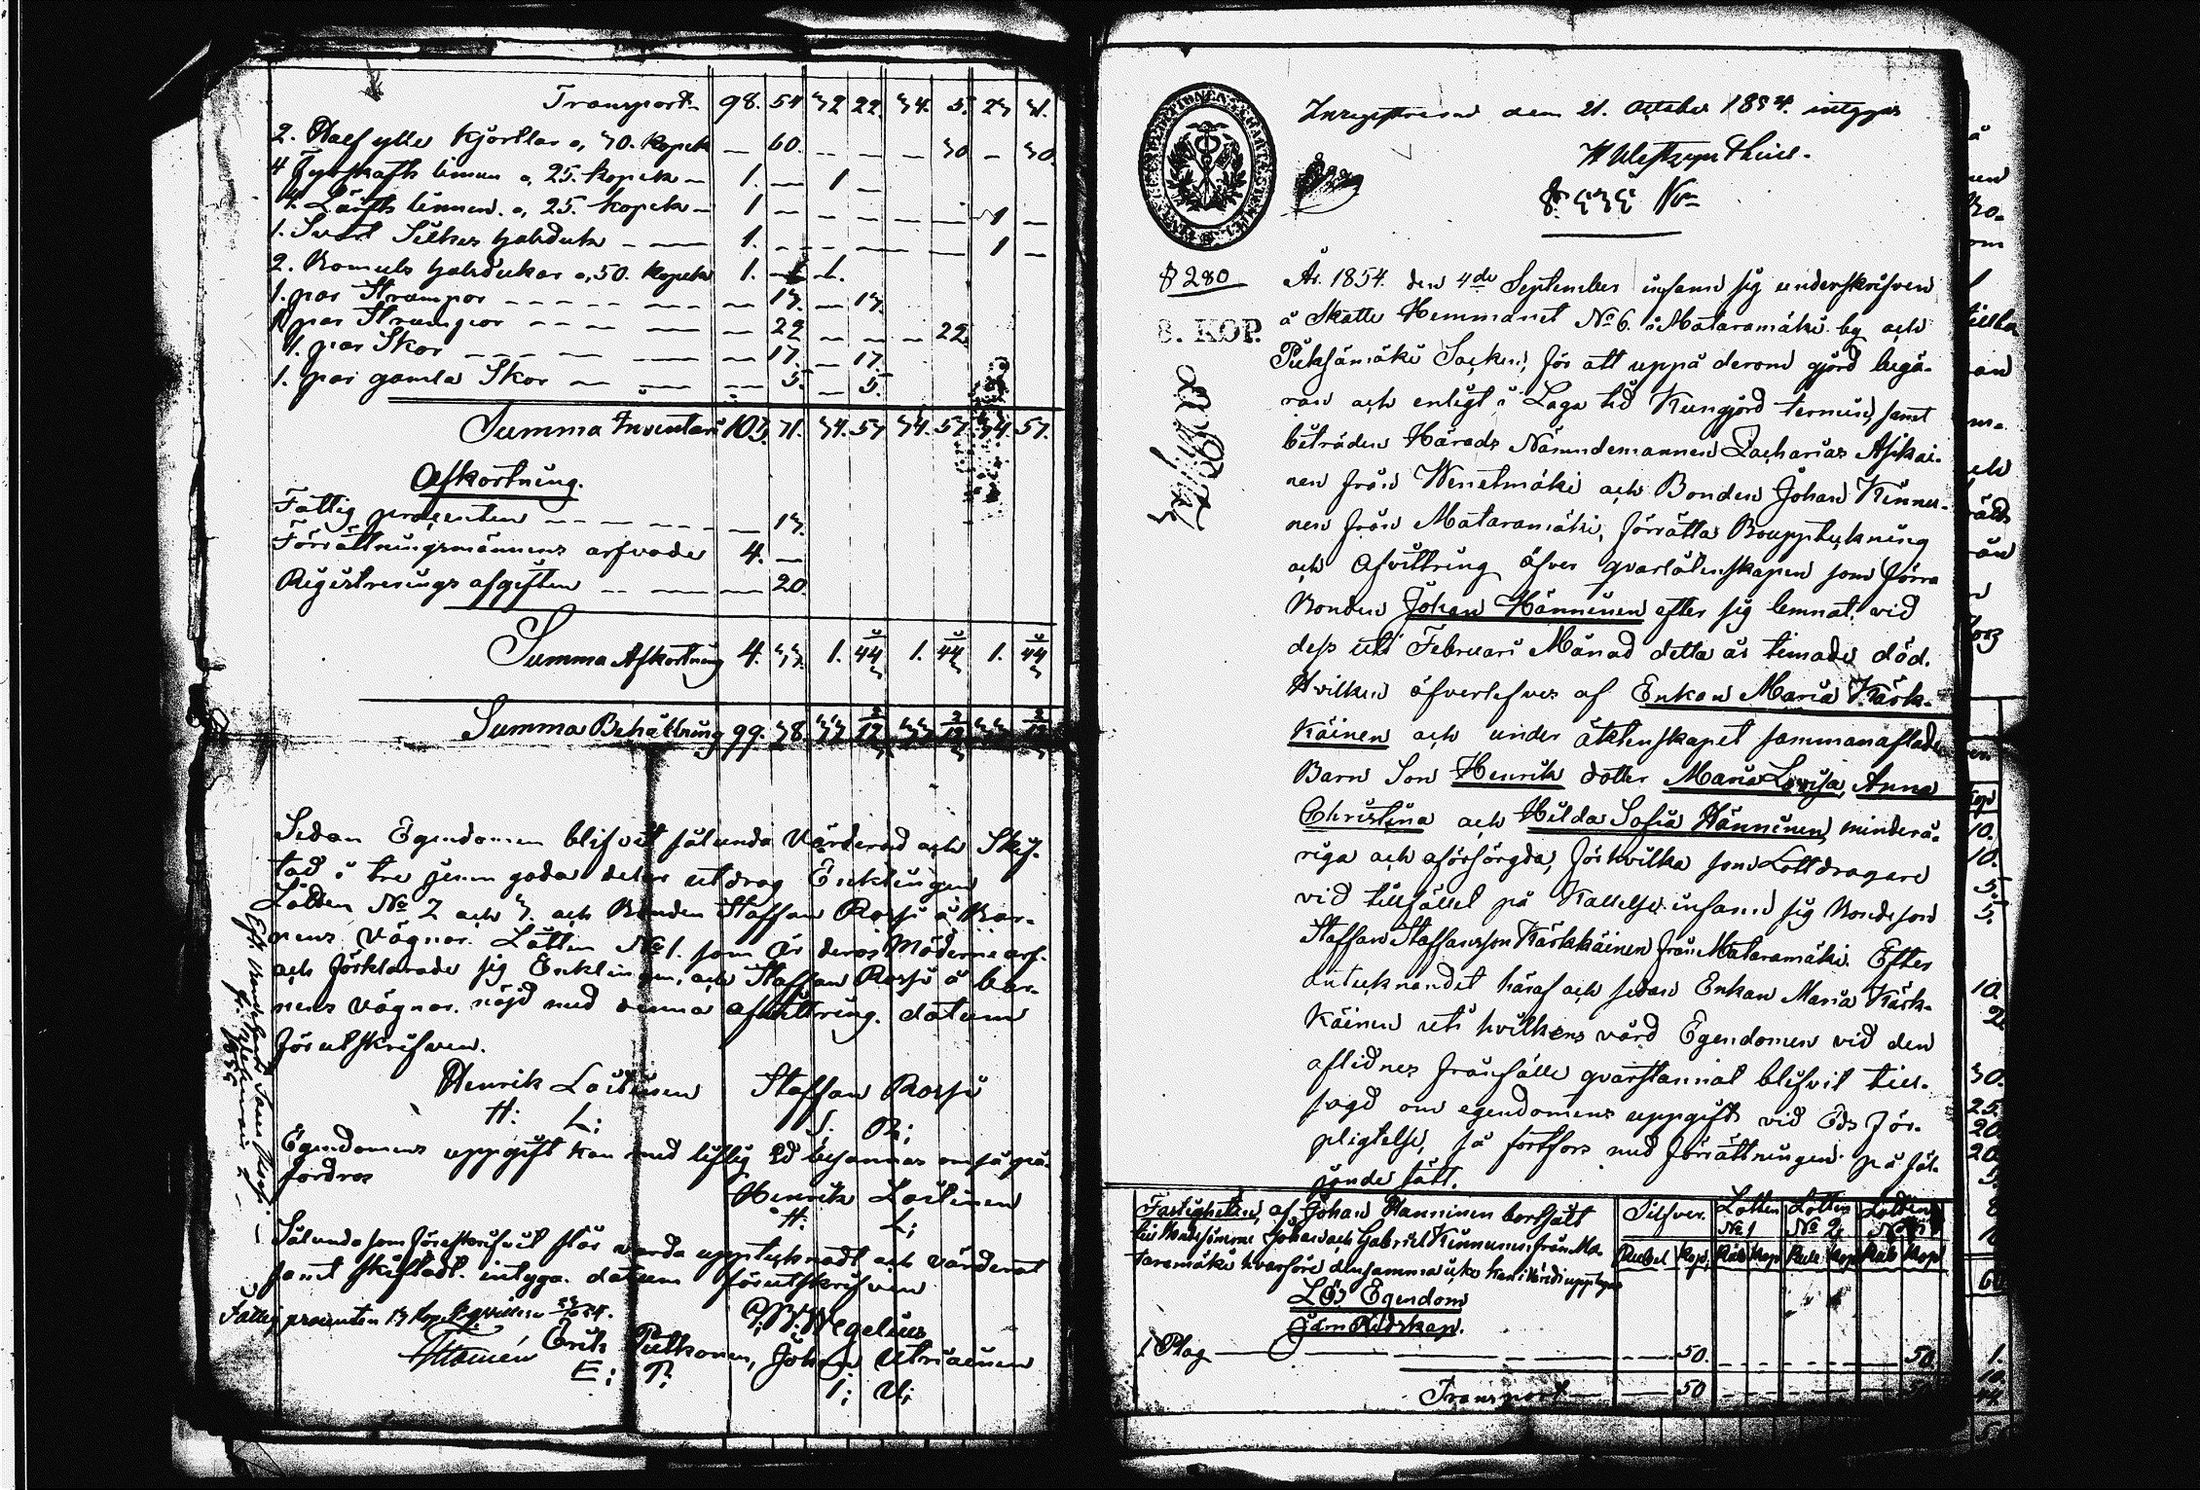 Transport 98. 54 32 22. 34. 5. 27 31.
2. Half ylle Kjortlar a, 30. Kopek — 60. — — — 30 — 30.
4 Fyrskafts linnen a, 25. Kopek — 1. — 1 —
4. Lärfts linnen a, 25. Kopek — 1 — — — — — 1 —
1. Svart Silkes halsduk — 1. — — — — — 1 —
2. Bomuls halsdukar a, 50. Kopek 1. — 1.
1. par Strumpor — 17. — 17.
1 par Strumpor — 22 — — — 22.
1. par Skor — 17. — 17.
1. par gamla Skor — 5. — 5.
Summa Inventarii 103. 71. 34. 57 34. 57 34 57.
Afkortning.
Fattig procenten — 13.
Förrättningsmännens arfvode 4. —
Registrerings afgiften — 20.
Summa Afkortning 4. 33. 1. 44 1. 44 1. 44
Summa Behållning 99. 38. 33 12 33 12 33
Sedan Egendomen blifvit sålunda Värderad och Skif-
tad i tre jemn goda delar utdrog Enklingen
Lotten No 2 och 3. och Bonden Staffan Rossi å Bar-
nens Vägnar. Lotten No 1. som är deras Möderne arf.
och förklarade sig Enklingen, och Staffan Rossi å bar-
nens Vägnar. nöjd med denna afvittring. datum
förutskrifven.
Henrik Laitinen Staffan Rossi
H: L: S. R:
Egendomens uppgift kan med liflig Ed besannas om så på-
fordras
Henrik Laitinen
H: L:
Sålunda som föreskrifvit står varda upptecknadt och värderat
samt skiftadt. intyga. datum förutskrifven
Fattig procenten 13 Kop. qvitteras
Wegelius
Erik Pulkonen, Johan Utriainen
E: P: J: U:
Inregistrerad den 21. October 1854. intygar
§ 535
§ 280
8. KOP.
År. 1854. den 4de September infann sig underskrifven
å Skatte Hemmanet No 6. i Mataramäki by och
Pieksämäki Socken, för att uppå derom gjord begä-
ran och enligt i Laga tid Kungjord termin, samt
biträden Härads Nämndemannen Zacharias Asikai-
nen från Wenetmäki och Bonden Johan Kinnu-
nen från Mataramäki, förrätta Bouppteckning
och Afvittring öfver qvarlåtenskapen som förra
Bonden Johan Hänninen efter sig lemnat. vid
dess uti Februari Månad detta år timade död.
Hvilken öfverlefves af Enkan Maria Kärk-
käinen och under äktenskapet sammanaflade
Barn Son Henrik dotter Maria Lovisa, Anna
Christina och Hilda Sofia Hänninen, minderå-
riga och oförsörgda, för hvilka som Lottdragare
vid tillfället på Kallelse infann sig Bondeson
Staffan Staffansson Kärkkäinen från Mataramäki. Efter
antecknandet häraf och sedan Enkan Maria Kärk-
käinen uti hvilkens vård Egendomen vid den
aflidnes frånfälle qvarstannat blifvit till-
sagd om egendomens uppgift vid Eds för-
pligtelse, så fortfors med förrättningen på föl-
jande sätt.
Fastigheten, af Johan Hänninen bortsålt
till Bondesönerne Johan och Gabriel Kinnunen från Ma-
taramäki hvarföre densamma icke kan i Värdi upptagas
Silfver. Lotten No 1 Lotten No 2. Lotten No 3
Rubel Kop. Rub Kop Rub. Kop Rub Kop
Lös Egendom
Jern Redskap.
1 Plog — 50. — — — 50.
Transport — 50 — — — 50